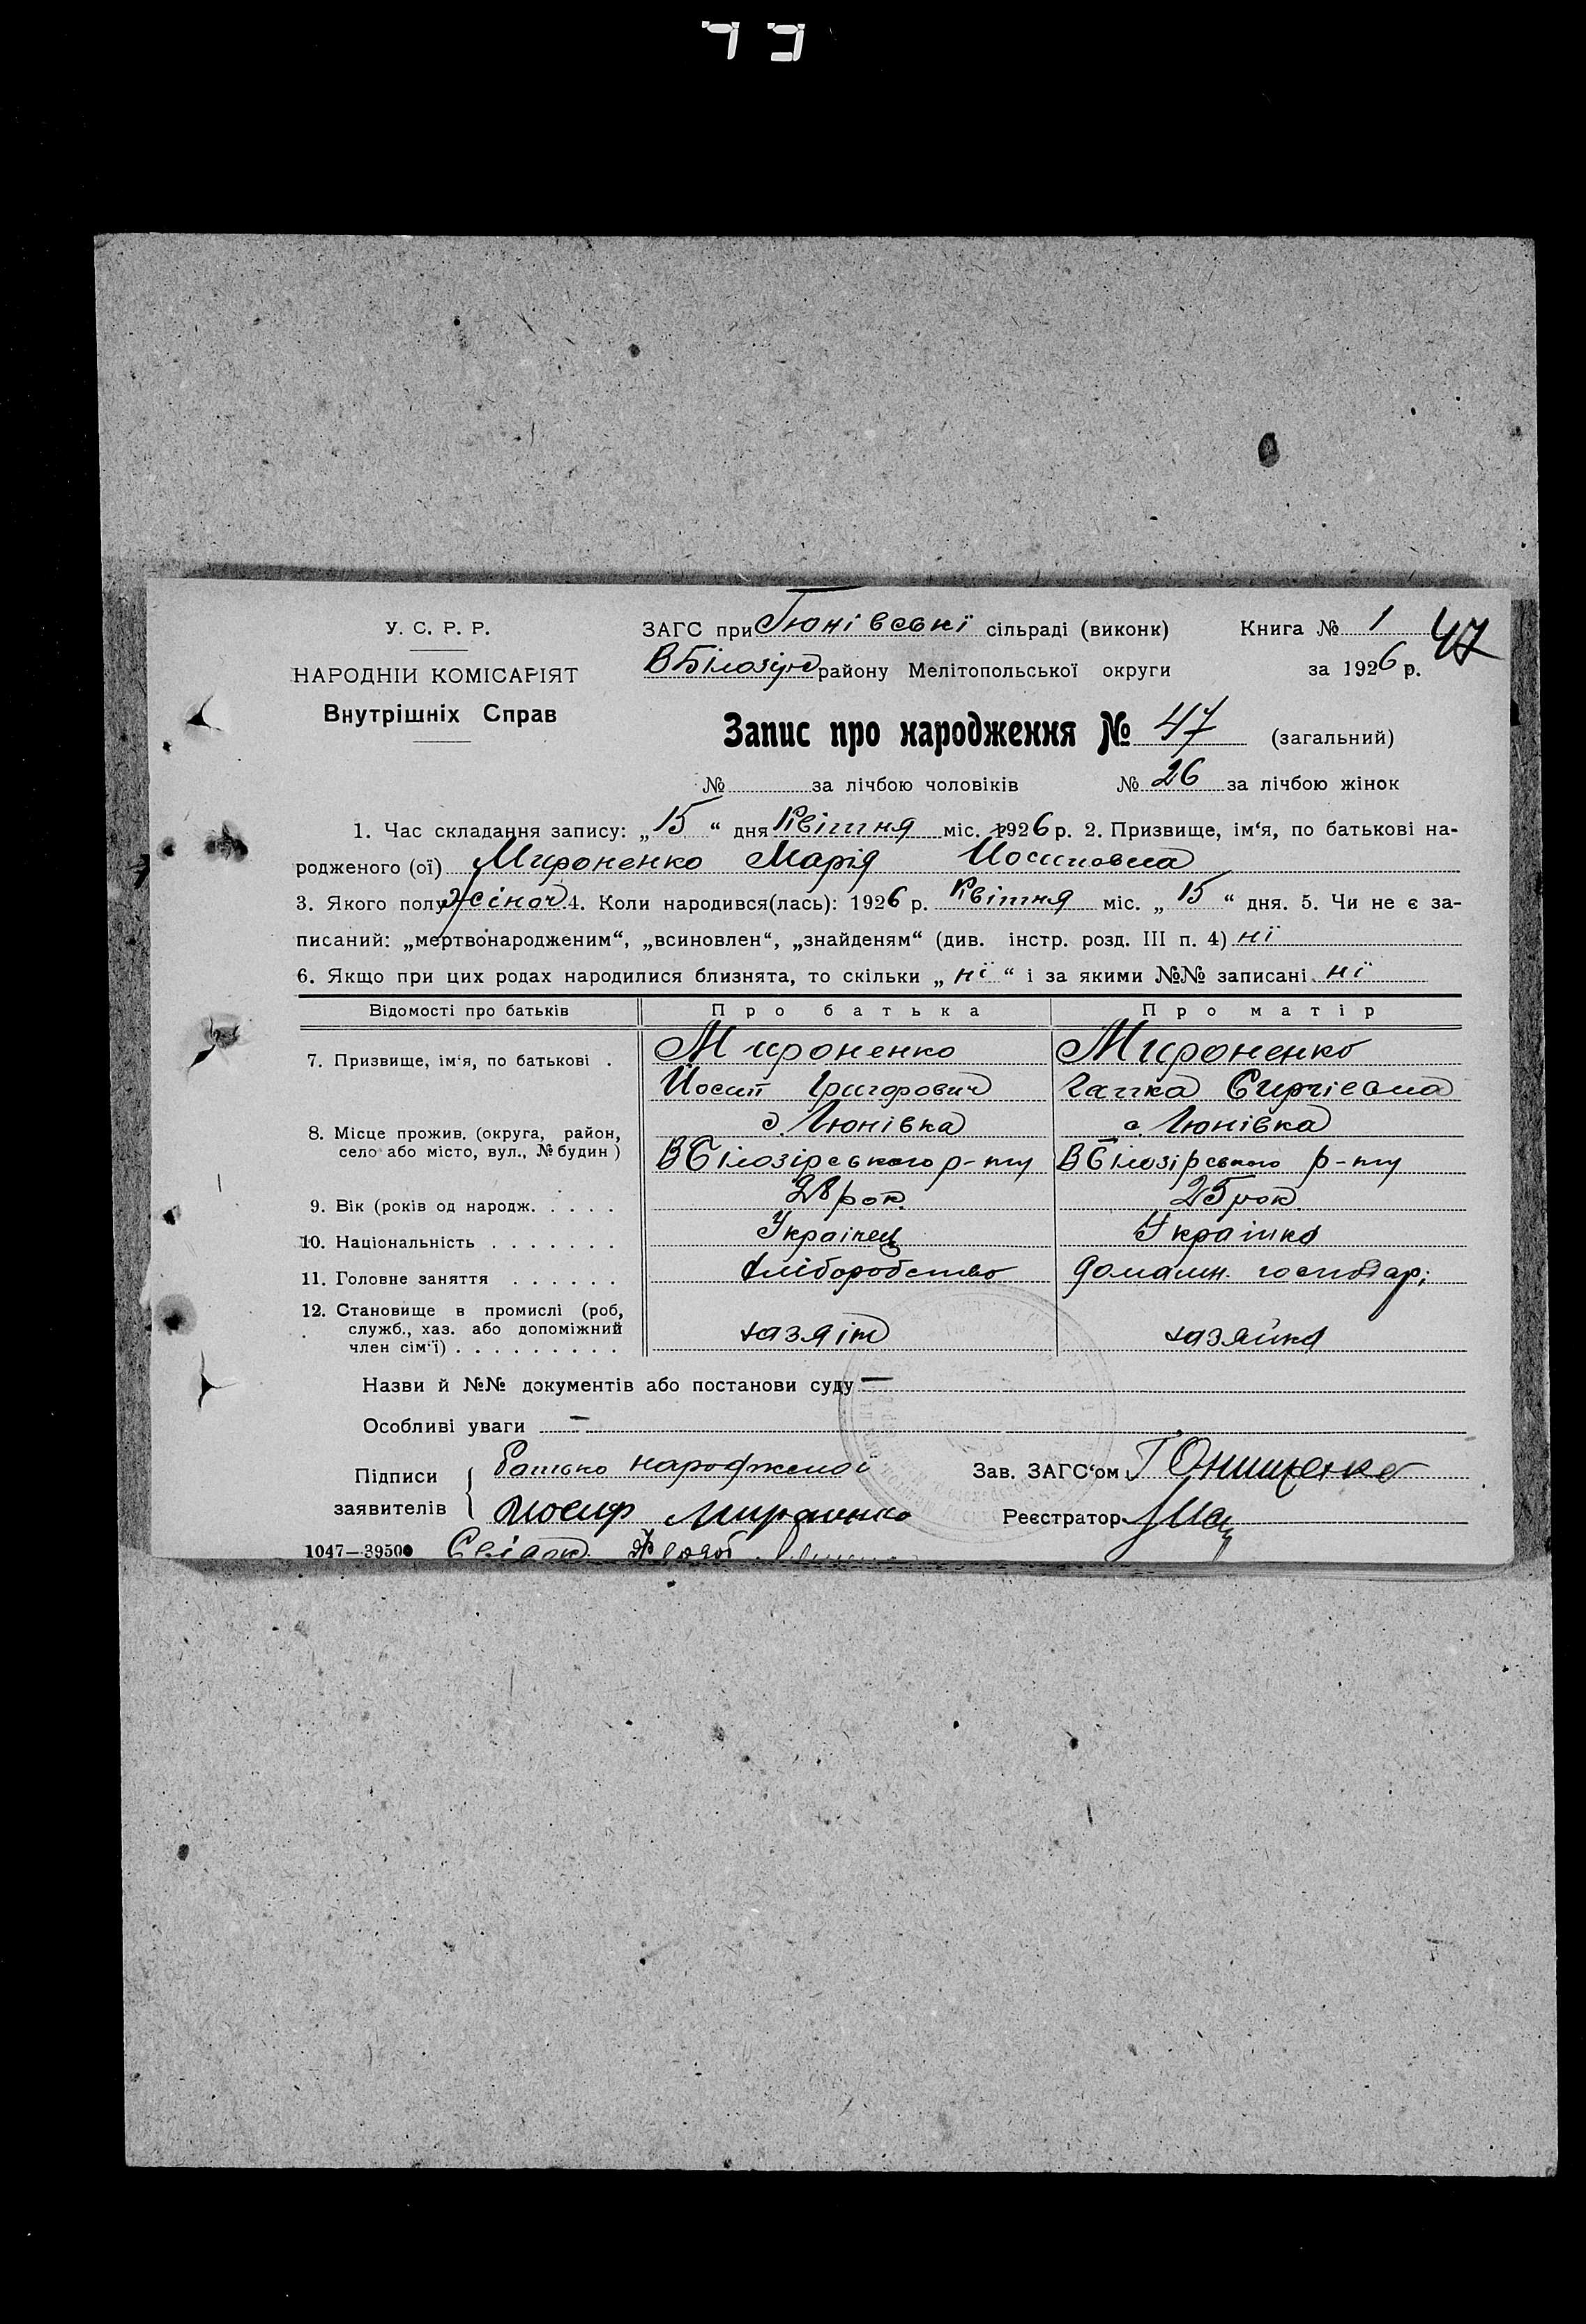 У. С. Р. Р.
НАРОДНІЙ КОМІСАРІЯТ
Внутрішніх Справ
ЗАГС при Гюнівські сільраді (виконк)
В Білозір району Мелітопольської округи
Книга № 1 47
за 1926 р.
Запис про народження № 47 (загальний)
№ за лічбою чоловіків № 26 за лічбою жінок
1. Час складання запису: „15“ дня Квітня міс. 1926 р. 2. Призвище, ім‘я, по батькові на-
родженого (ої) Мироненко Марія Йосиповна
3. Якого полу жіноч. 4. Коли народився(лась): 1926 р. Квітня міс. „15“ дня. 5. Чи не є за-
писаний: „мертвонародженим“, „всиновлен“, „знайденям“ (див. інстр. розд. III п. 4) ні
6. Якщо при цих родах народилися близнята, то скільки „ні“ і за якими №№ записані ні
Відомості про батьків Про батька Про матір
7. Призвище, ім‘я, по батькові . Мироненко Мироненко
Йосип Григорович Гапка Сиргіевна
8. Місце прожив. (округа, район, с. Гюнівка с. Гюнівка
село або місто, вул., № будин) В Білозірського р-ну В Білозірського р-ну
9. Вік (років од народж. . . . . 28 рок. 25 рок.
10. Національність . . . . . . . Українец Українка
11. Головне заняття . . . . . . хліборобство домашн. господар.
12. Становище в промислі (роб,
служб., хаз. або допоміжний
член сім‘ї) . . . . . . . . . хазяін хазяйка
Назви й №№ документів або постанови суду —
Особливі уваги —
Підписи
заявителів
Батько народженої
Иосиф Мироненко
Зав. ЗАГС‘ом Г Онищенко
Реєстратор
1047—39500 Свідок